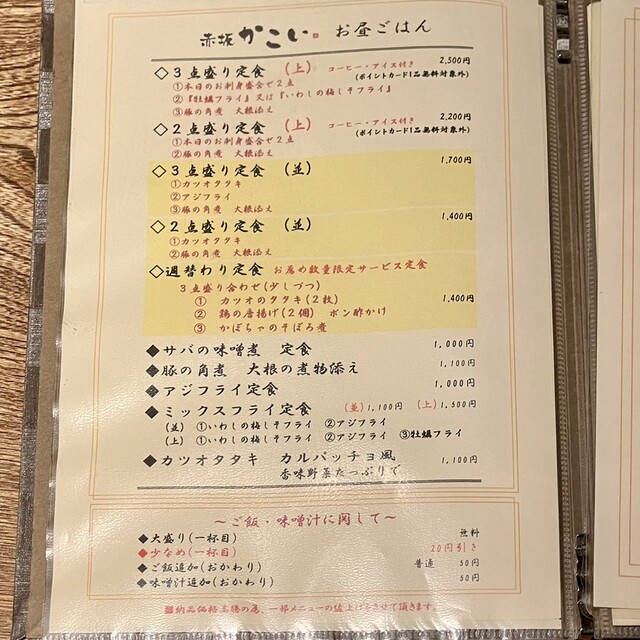 赤坂 かこい お昼ごはん
◇3点盛り定食 (上) コーヒー・アイス付き 2,500円
(ポイントカード1品無料対象外)
①本日のお刺身盛合せ2点
②『牡蠣フライ』又は『いわしの梅しそフライ』
③豚の角煮 大根添え
◇2点盛り定食 (上) コーヒー・アイス付き 2,200円
(ポイントカード1品無料対象外)
①本日のお刺身盛合せ2点
②豚の角煮 大根添え
◇3点盛り定食 (並) 1,700円
①カツオタタキ
②アジフライ
③豚の角煮 大根添え
◇2点盛り定食 (並) 1,400円
①カツオタタキ
②豚の角煮 大根添え
◇週替わり定食 お薦め数量限定サービス定食
3点盛り合わせ(少しづつ)
① カツオのタタキ(2枚) 1,400円
② 鶏の唐揚げ(2個) ポン酢かけ
③ かぼちゃのそぼろ煮
◆サバの味噌煮 定食 1,000円
◆豚の角煮 大根の煮物添え 1,100円
◆アジフライ定食 1,000円
◆ミックスフライ定食 (並)1,100円 (上)1,500円
(並) ①いわしの梅しそフライ ②アジフライ
(上) ①いわしの梅しそフライ ②アジフライ ③牡蠣フライ
◆カツオタタキ カルパッチョ風 1,100円
香味野菜たっぷりで
~ご飯・味噌汁に関して~
◆大盛り(一杯目) 無料
◆少なめ(一杯目) 20円引き
◆ご飯追加(おかわり) 普通 50円
◆味噌汁追加(おかわり) 50円
※納品価格高騰の為、一部メニューの値上げをさせて頂きます。